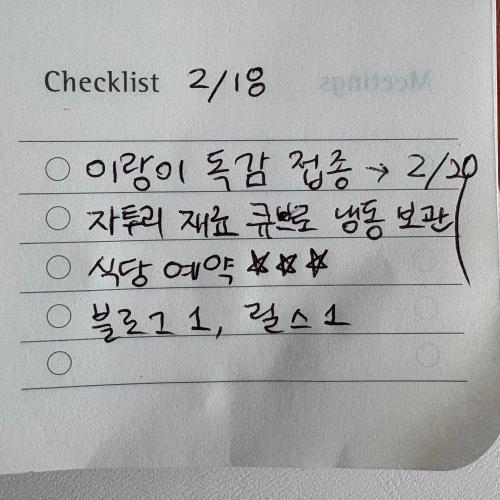 Checklist 2/18
Meetings
이랑이 독감 접종 → 2/20
자투리 재료 큐브로 냉동 보관
식당 예약 ☆☆☆
블로그 1, 릴스 1